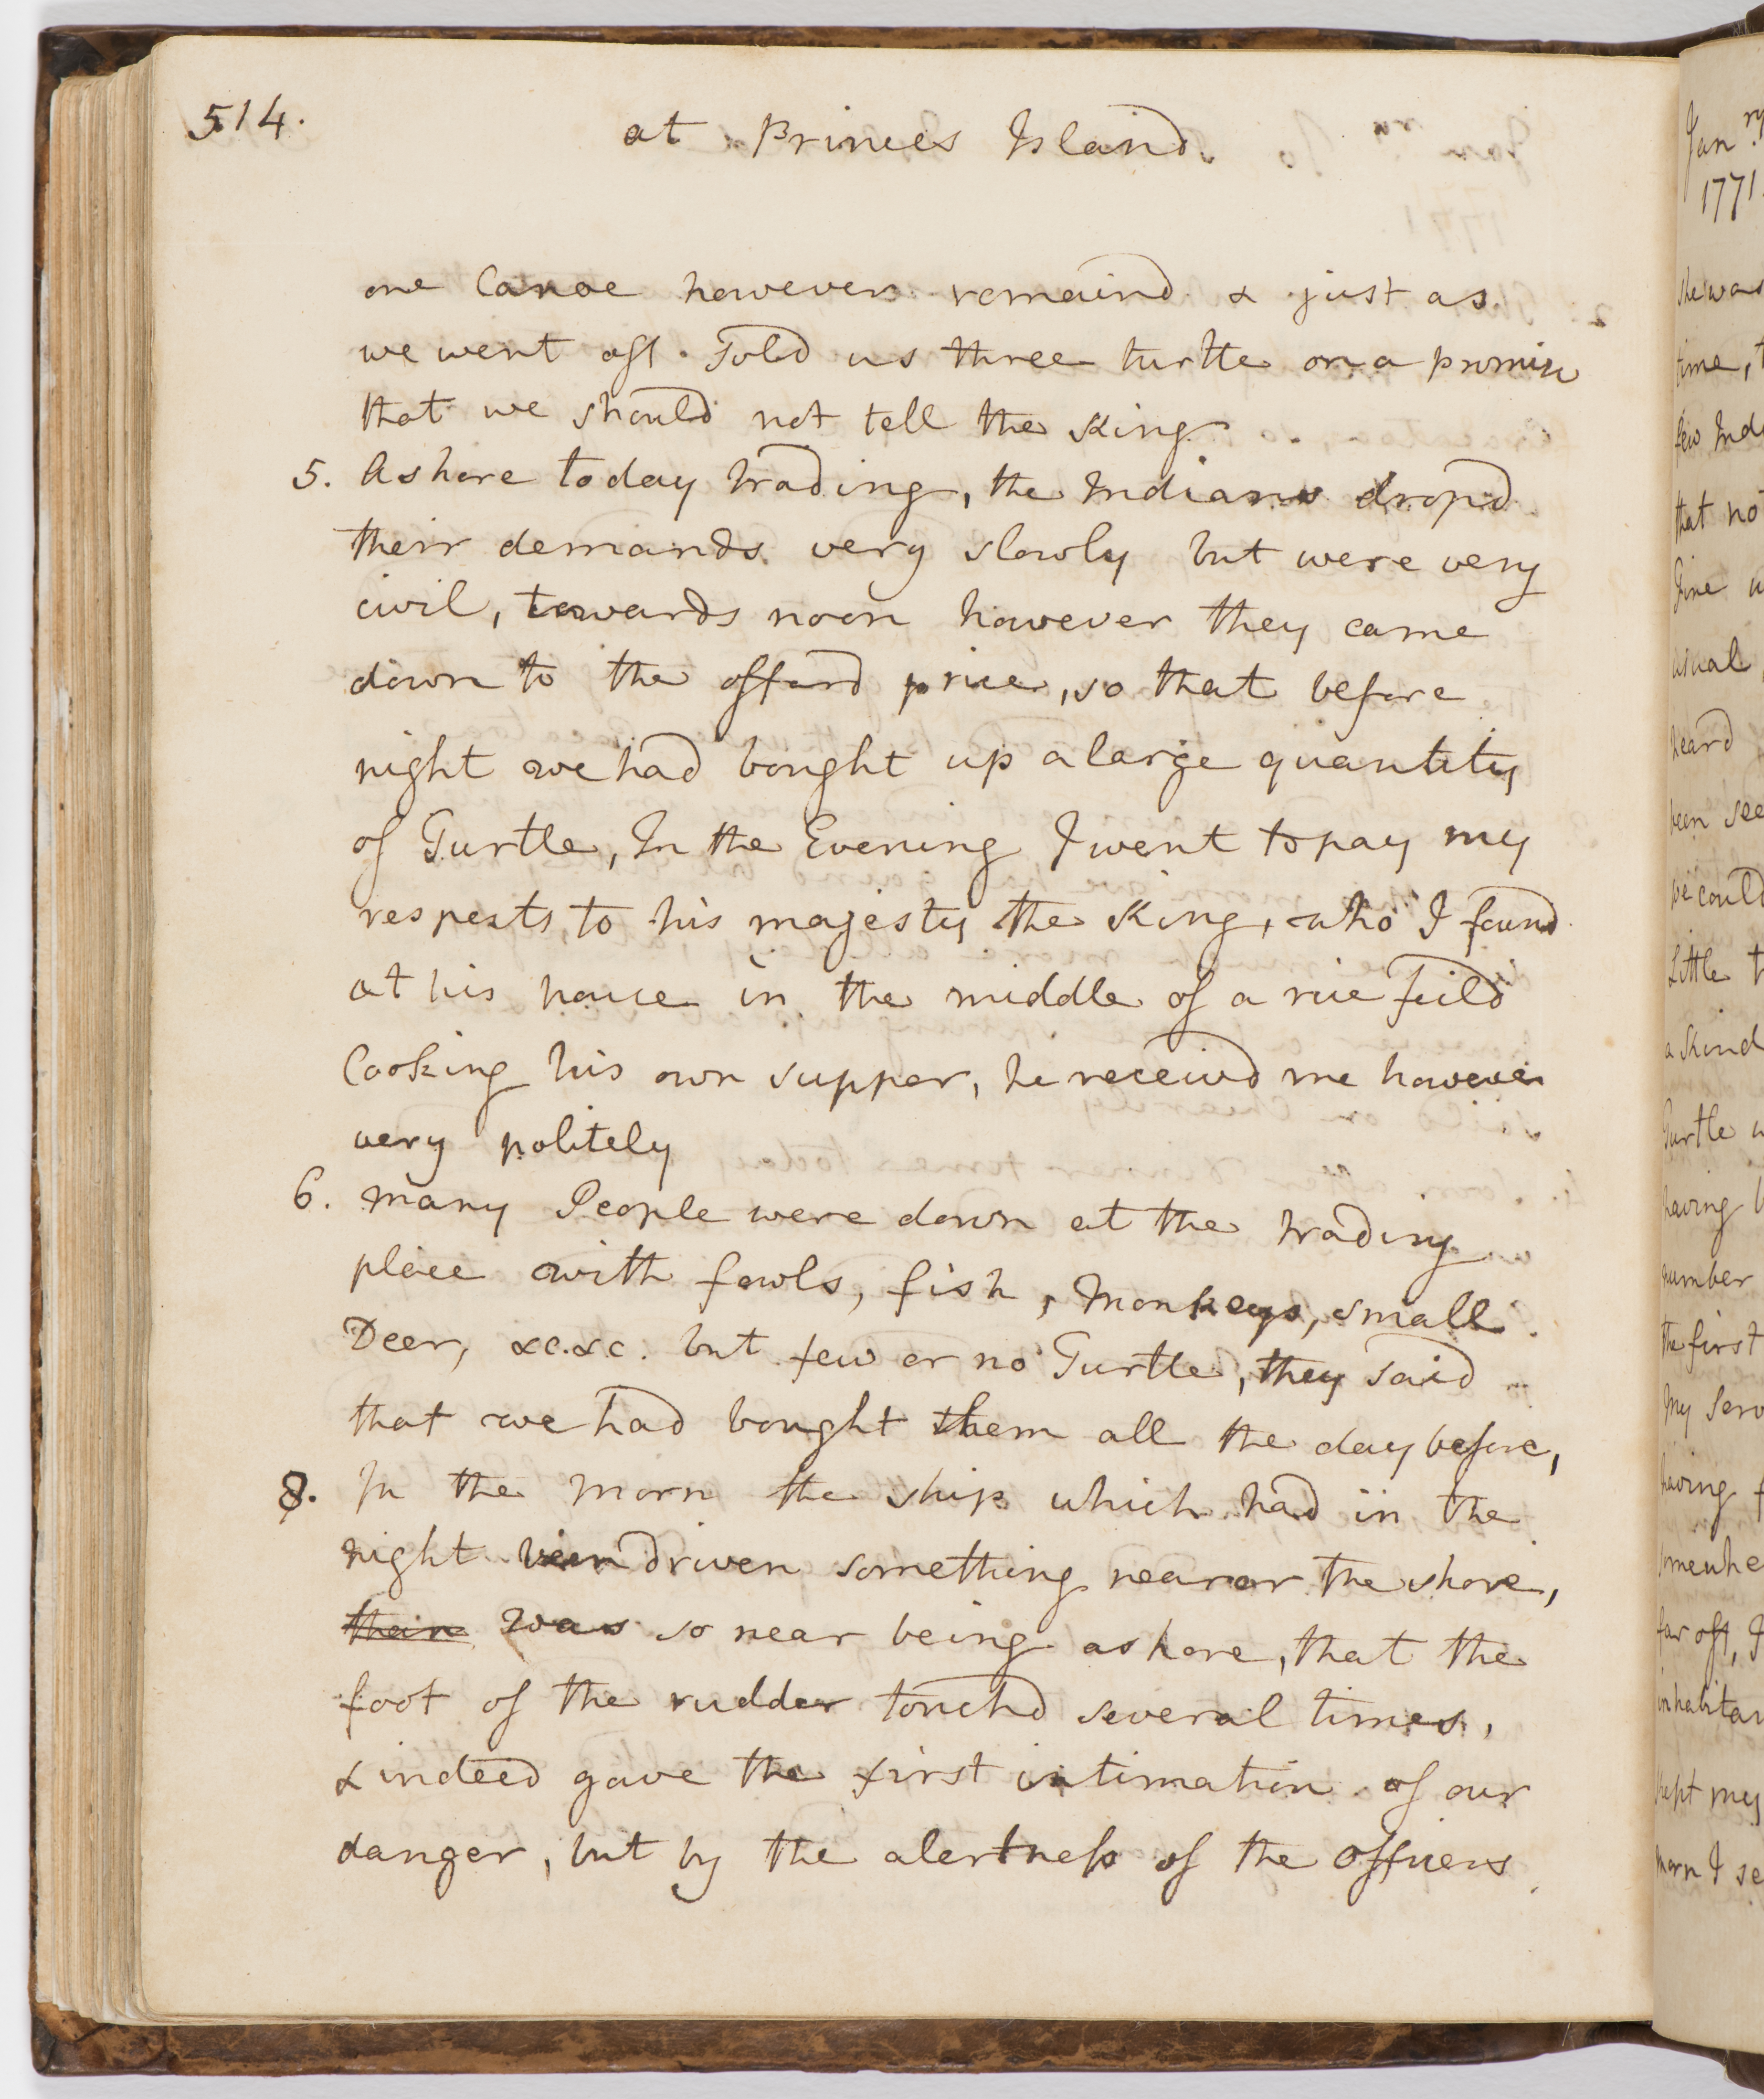 514.
at Princes Island.
one Canoe however remaind & just as
we went off sold us three turtle on a promise
that we should not tell the King
5. Ashore today trading, the Indians dropd
their demands very slowly but were very
civil, towards noon however they came
down to theofferd price, so that before
night we had bought up a large quantity
of Turtle, In the Evening I went to pay my
respects to his majesty the King, who I found
at his house in the middle of a rice feild
Cooking his own supper, he receivd me however
very politely
6. many People were down at the trading
place with fowls, fish, Monkeys, small
Deer, &c. &c. but few or no Turtle, they said
that we had bought them all the day before,
8. In the Morn the ship which had in the
night been driven something nearer the shore,
was so near being ashore, that the
foot of the rudder touchd several times,
& indeed gave the first intimation of our
danger, but by the alertness of the officers
Jan.ry
1771.
she was
time,
few
that no
usual
heard
been
we could
Little
a kind
Turtle
having
number
the first
My
having
far off,
kept my
morn I